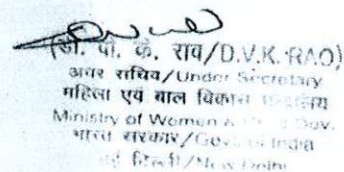 (डी. वी. के. राव/D.V.K. RAO)
अवर सचिव/Under Secretary
महिला एवं बाल विकास
Ministry of Women & Dev.
भारत सरकार/Govt. of India
नई दिल्ली/New Delhi